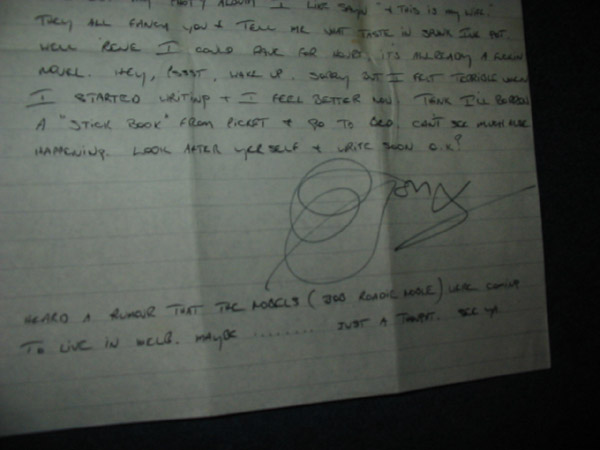 MY PARTY ALBUM I LIKE SAYN' "+ THIS IS MY WIFE"
THEY ALL FANCY YOU + TELL ME TASTE IN
WELL I COULD FOR HOURS, IT'S ALREADY A
NOVEL. HEY, PSSST, WAKE UP. SORRY BUT I FELT TERRIBLE WHEN
I STARTED WRITING + I FEEL BETTER NOW. THINK I'LL BORROW
A "STICK BOOK" FROM PICKET + GO TO BED. CAN'T SEE MUCH ELSE
HAPPENING. LOOK AFTER YERSELF + WRITE SOON O.K?
HEARD A RUMOUR THAT THE MODELS ( ROADIE ) WERE COMING
TO LIVE IN MELB. MAYBE .......... JUST A THOUGHT. SEE YA